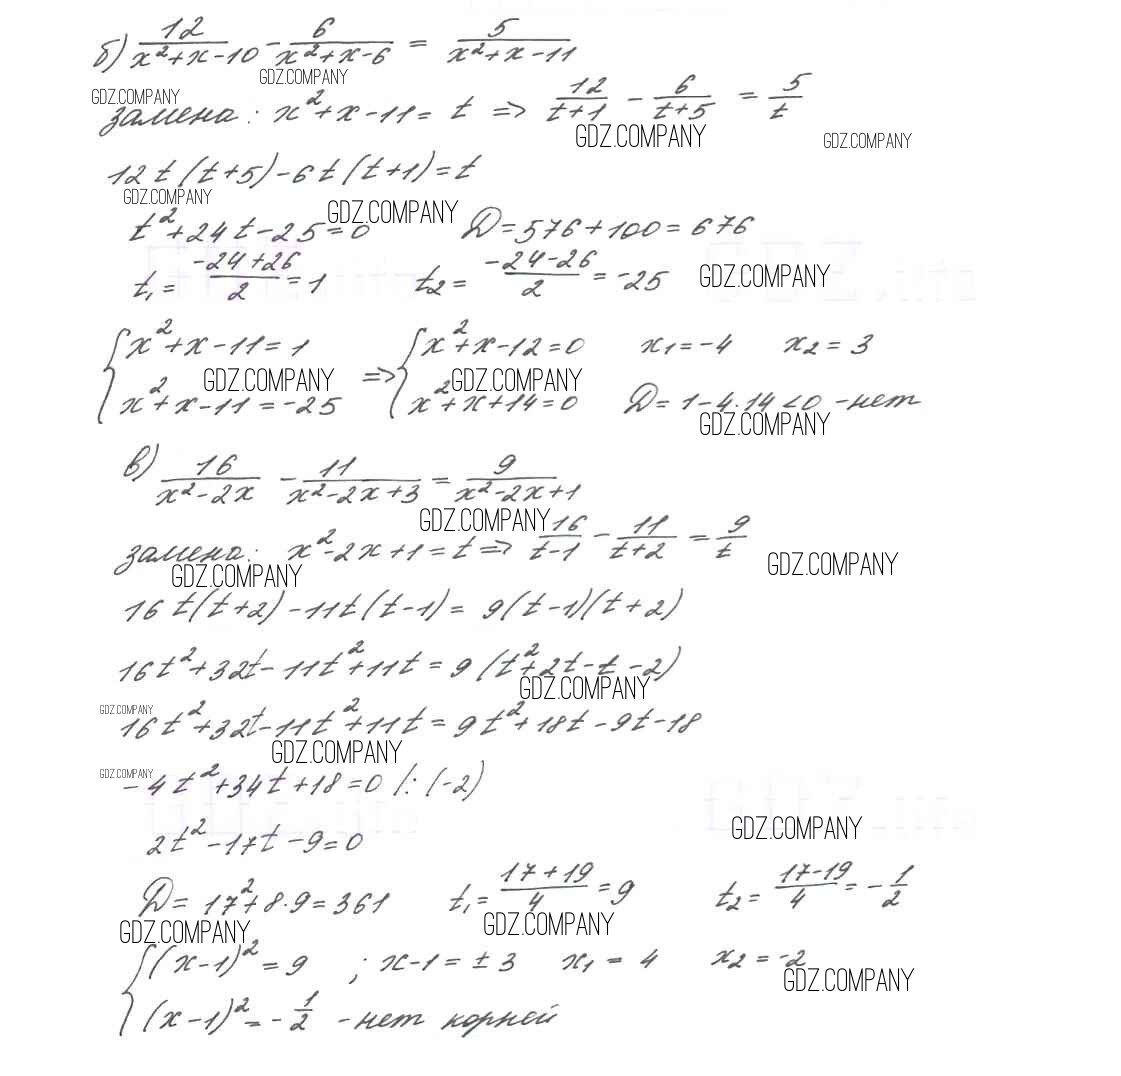 б) 12/(x²+x-10) - 6/(x²+x-6) = 5/(x²+x-11)
GDZ.COMPANY
GDZ.COMPANY
замена: x²+x-11 = t => 12/(t+1) - 6/(t+5) = 5/t
GDZ.COMPANY GDZ.COMPANY
12t(t+5)-6t(t+1)=t
GDZ.COMPANY GDZ.COMPANY
t²+24t-25=0 D=576+100=676
t₁= (-24+26)/2 = 1 t₂= (-24-26)/2 = -25 GDZ.COMPANY
{ x²+x-11=1 { x²+x-12=0 x₁=-4 x₂=3
GDZ.COMPANY => GDZ.COMPANY
x²+x-11=-25 x²+x+14=0 D=1-4·14<0 -нет
GDZ.COMPANY
в) 16/(x²-2x) - 11/(x²-2x+3) = 9/(x²-2x+1)
GDZ.COMPANY
замена: x²-2x+1=t => 16/(t-1) - 11/(t+2) = 9/t
GDZ.COMPANY GDZ.COMPANY
16t(t+2)-11t(t-1)= 9(t-1)(t+2)
16t²+32t-11t²+11t=9(t²+2t-t-2)
GDZ.COMPANY
GDZ.COMPANY
16t²+32t-11t²+11t=9t²+18t-9t-18
GDZ.COMPANY
GDZ.COMPANY
-4t²+34t+18=0 /:(-2)
GDZ.COMPANY
2t²-17t-9=0
D= 17²+8·9=361 t₁= (17+19)/4 = 9 t₂= (17-19)/4 = -1/2
GDZ.COMPANY GDZ.COMPANY
{ (x-1)²=9 ; x-1=±3 x₁=4 x₂=-2
GDZ.COMPANY
(x-1)²=-1/2 -нет корней